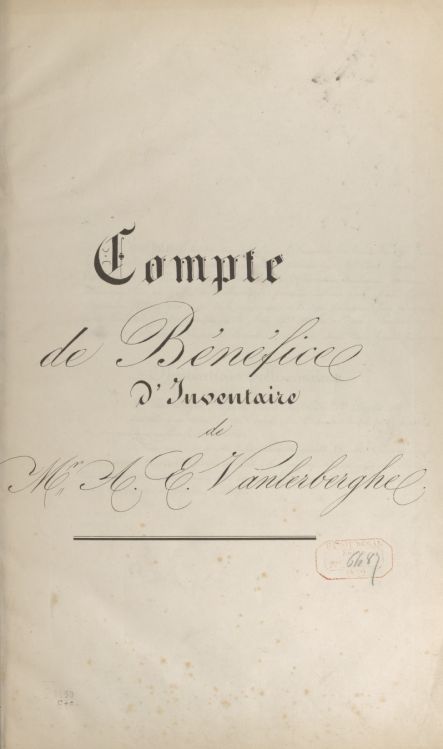 Compte
de Bénéfice
D'Inventaire
de
Mr. A. E. Vanlerberghe.
6687